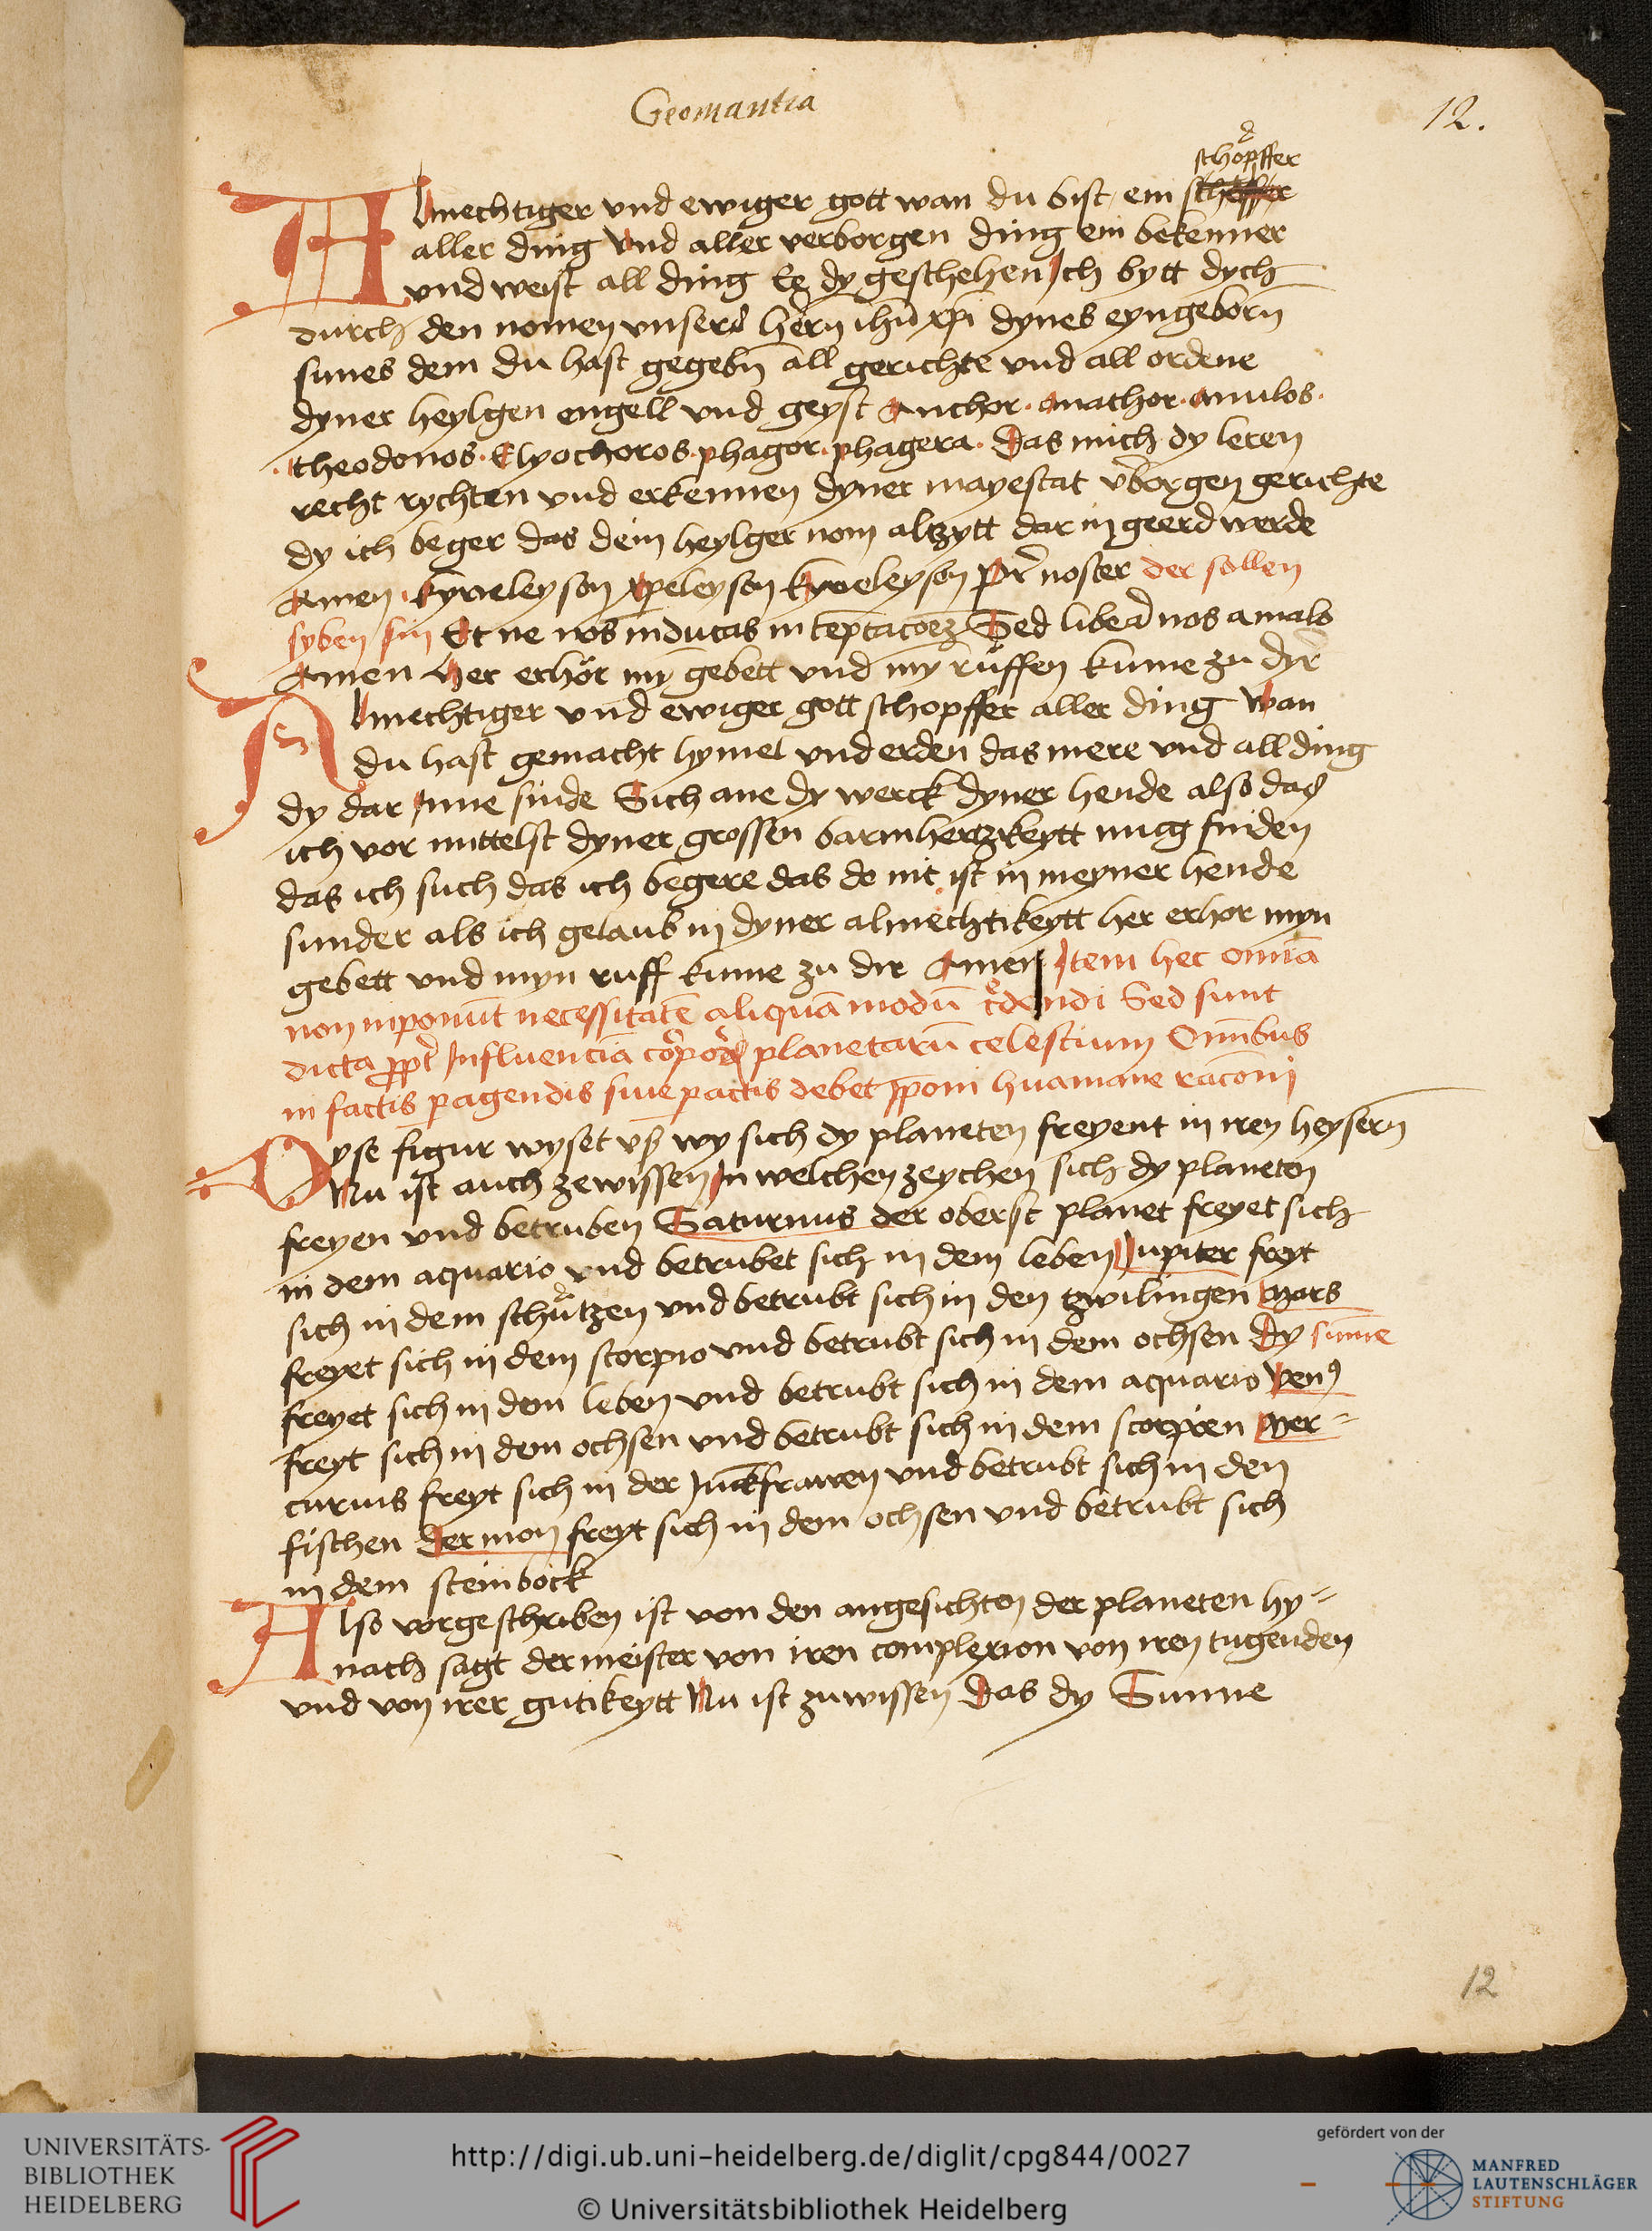 Geomantia
12.
schöpffer
Almechtiger vnd ewiger gott wan du bist ein scheffer
aller ding Vnd aller verborgen ding ein bekenner
vnd weist all ding Ee dy geschehen Ich bytt dych
durch den nomen vnsers hern ihū xpī dynes eyngeborn̄
sunes dem du hast gegebn̄ all gerichte vnd all ordene
dyner heylgen engell vnd geyst Anchor · Anathor · Anulos ·
· theodonos · Elyochoros · phagor · phagera · Das mich dy leren
recht rychten vnd erkennen dyner mayestat v̄borgen gerichte
dy ich beger das dein heylger nom altzytt dar in geerd werde
Amen · kyrieleyson xp̄eleyson kyrieleyson Pr̄ noster der sollen
syben sin Et ne nos inducas in temptacoēz Sed libera nos a malo
Amen Her erhör my gebett vnd my rüffen kume zu dyr
Almechtiger vnd ewiger gott schopffer aller ding Wan
du hast gemacht hymel vnd erden das mere vnd all ding
dy dar Inne sinde Sich ane dy werck dyner hende also das
ich vor mittelst dyner grossen barmhertzkeytt mug finden
das ich such das ich begere das do nit ist in meyner hende
sunder als ich gelaub in dyner almechtikeytt her erhor myn
gebett vnd myn ruff kume zu dir Amen Item hec omnia
non inponūt necessitatē aliquā modū c̄dendi Sed sunt
dicta ppt̄ Influenciā corporꝝ planetarū celestium Omībus
in factis peragendis siue pactis debet p̄poni huamane racōni
Dyse figur wyset vß wy sich dy planeten freyent in iren heysern̄
Nu ist auch zewissen In welchen zeychen sich dy planeten
freyen vnd betruben Saturnus der oberst planet freyet sich
in dem aquario vnd betrubet sich in dem leben Jupiter freyt
sich in dem schützen vnd betrubt sich in den tzwilingen Mars
freyet sich in dem scorpio vnd betrubt sich in dem ochsen Dy sunne
freyet sich in dem leben vnd betrubt sich in dem aquario Venꝰ
freyt sich in dem ochsen vnd betrubt sich in dem scorpien Mer=
curius freyt sich in der Junckfrawen vnd betrubt sich in den
fischen Der mon freyt sich in dem ochsen vnd betrubt sich
in dem steinbock
Also vorgeschriben ist von den angesichten der planeten hy=
nach sagt der meister von iren complexion von iren tugenden
vnd von irer gutikeytt Nu ist zuwissen Das dy Sunne
12
UNIVERSITÄTS-
BIBLIOTHEK
HEIDELBERG
http://digi.ub.uni-heidelberg.de/diglit/cpg844/0027
© Universitätsbibliothek Heidelberg
gefördert von der
MANFRED
LAUTENSCHLÄGER
STIFTUNG